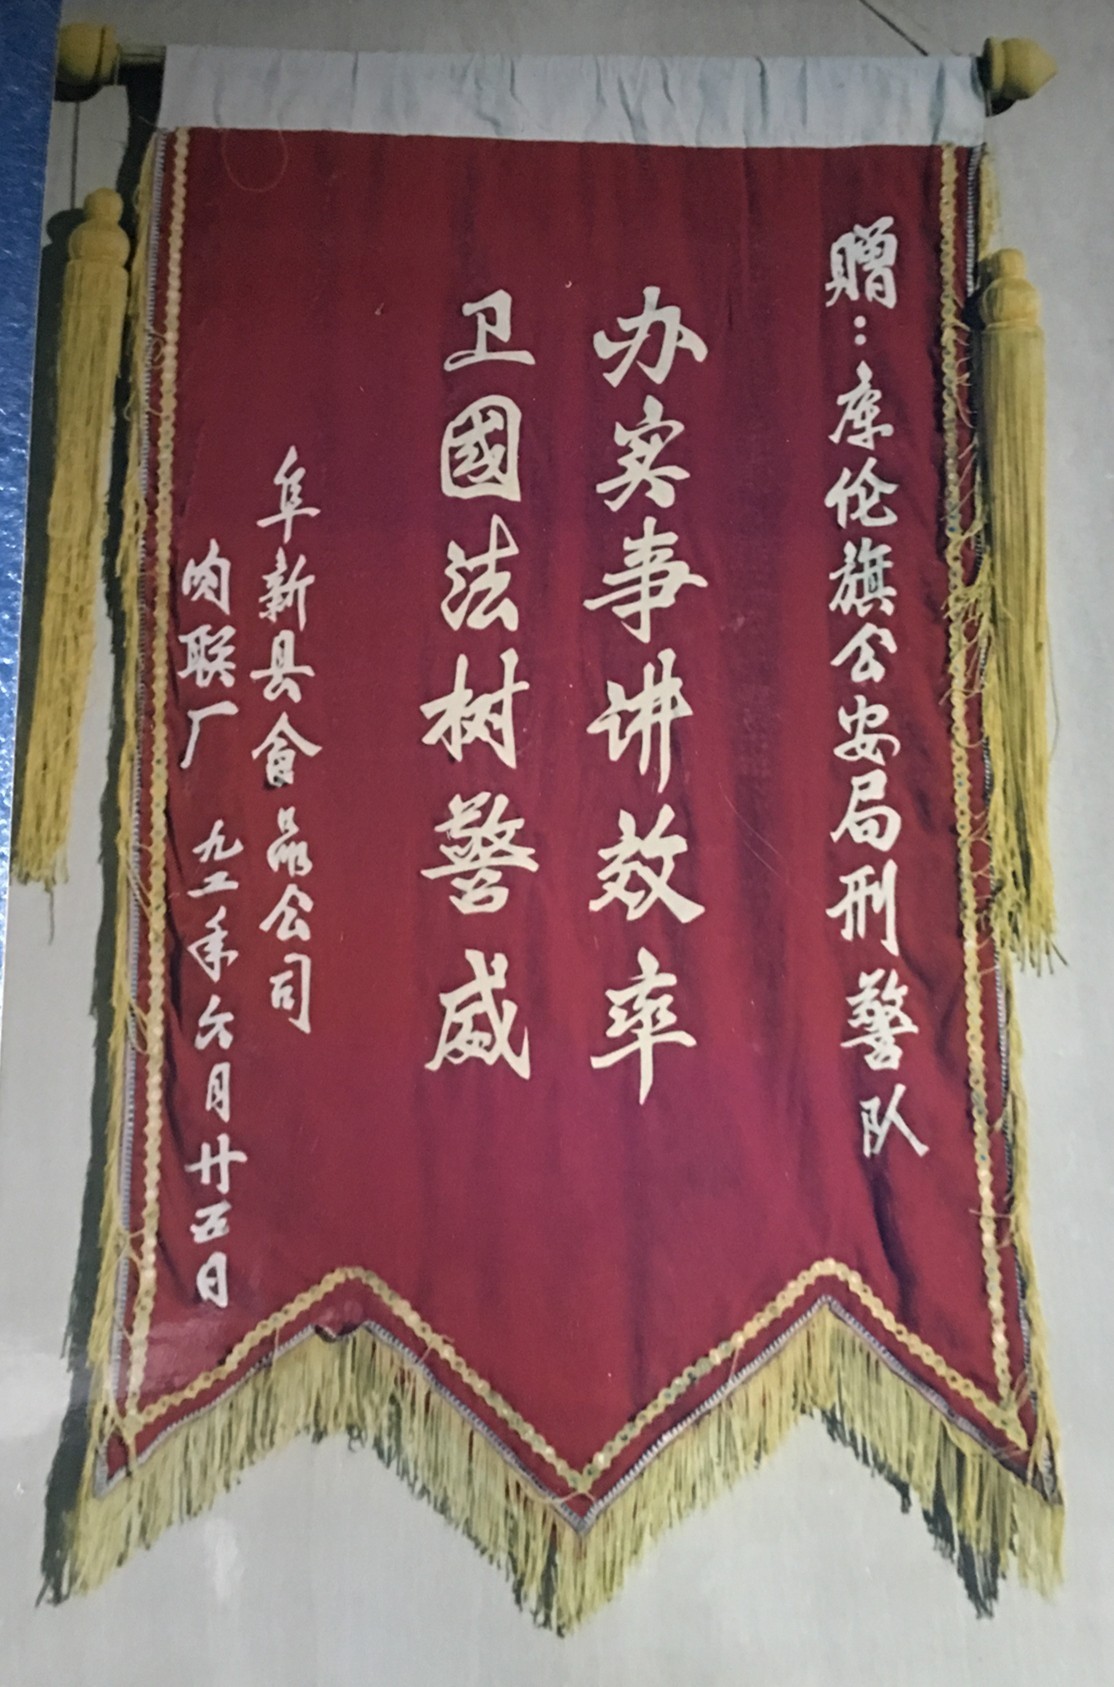 赠：库伦旗公安局刑警队
办实事讲效率
卫國法树警威
阜新县食品公司
肉联厂 九二年六月廿五日